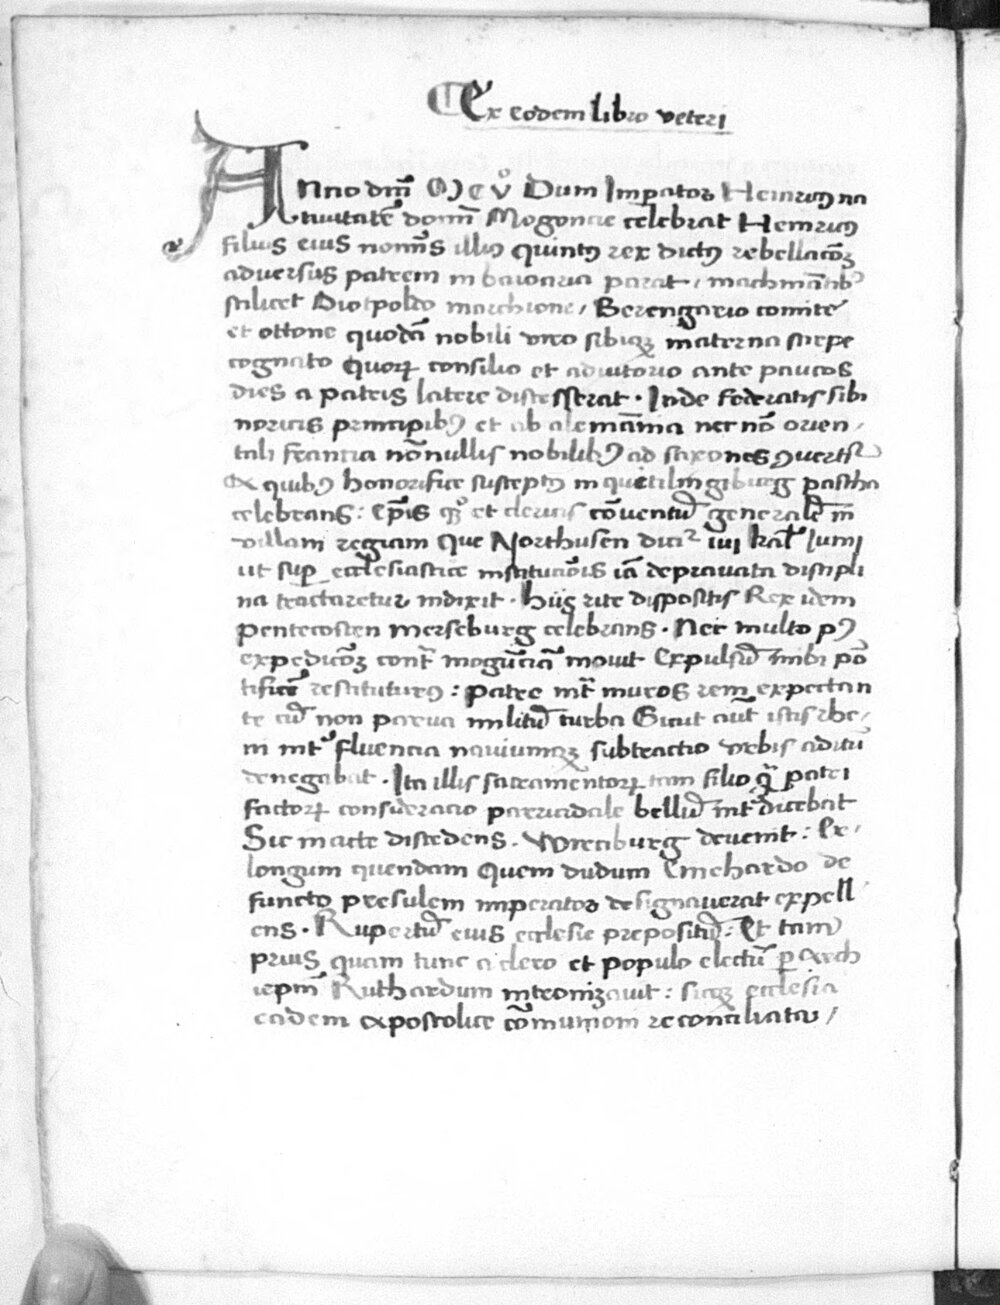 Ex eodem libro veteri
Anno dñi M C vº Dum Imꝑator Heinricꝰ na
tiuitatē domī Mogoncie celebrat Heinricꝰ
filius eius nominis illiꝰ quintꝰ rex dictꝰ rebellacõꝫ
aduersus patrem in baioaria parat / machinātibꝰ
scilicet Diotpoldo marchione / Berengario comite
et ottone quodā nobili viro sibiqꝫ materna stirpe
cognato Quoꝝ consilio et adiutorio ante paucos
dies a patris latere discesserat · Inde federatis sibi
noricis principibꝰ et ab alemānia necnō orien /
tali francia nōnullis nobilibꝰ ad saxones ꝯuertit᷒
A quibꝰ honorifice susceptꝰ in quitilingiburg pascha
celebrans : Ep̄is qꝫ et clericis cōuentū generalē in
villam regiam que Northusen dicit᷒ iiij kal̄ Iunij
ut suꝑ ecclesiastice instituciōis iā deprauata discipli
na tractaretur indixit · hijs rite dispositis Rex idem
pentecosten merseburg celebrans · Nec multo pꝰ
expedicōꝫ contᷓ mogūciā mouit Expulsū inibi pō
tificē restituturꝰ : patre intᷓ muros rem expectan
te cū non parua militū turba Sicut aūt istis rhe /
ni int᷒fluencia nauiumqꝫ subtractio vrbis aditū
denegabat · Ita illis sacramentoꝝ tam filio qᷓ patri
factoꝝ consideracio parricidale bellū int᷒dicebat
Sic marte discedens · Wirciburg deuenit : Er /
longum quendam Quem dudum Emehardo de
functo presulem imperator designauerat expell
ens · Rupertū eius ecclesie prepositū : Et tam
prius quam tunc a clero et populo electū ꝑ Arch
iepm̄ Ruthardum intronizauit : sicqꝫ ecclesia
eadem apostolice cōmunioni reconciliata /